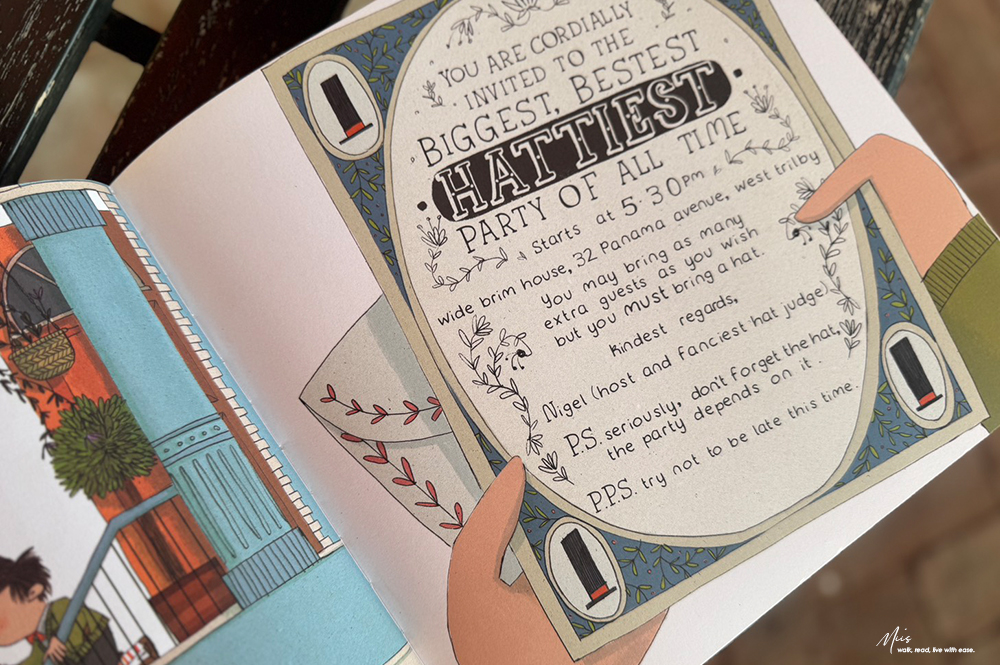 YOU ARE CORDIALLY
INVITED TO THE
BIGGEST, BESTEST
HATTIEST
PARTY OF ALL TIME
Starts at 5·30pm
wide brim house, 32 Panama avenue, west trilby
you may bring as many
extra guests as you wish
but you must bring a hat.
kindest regards,
Nigel (host and fanciest hat judge)
P.S. seriously, don't forget the hat,
the party depends on it.
P.P.S. try not to be late this time.
Miis
walk, read, live with ease.